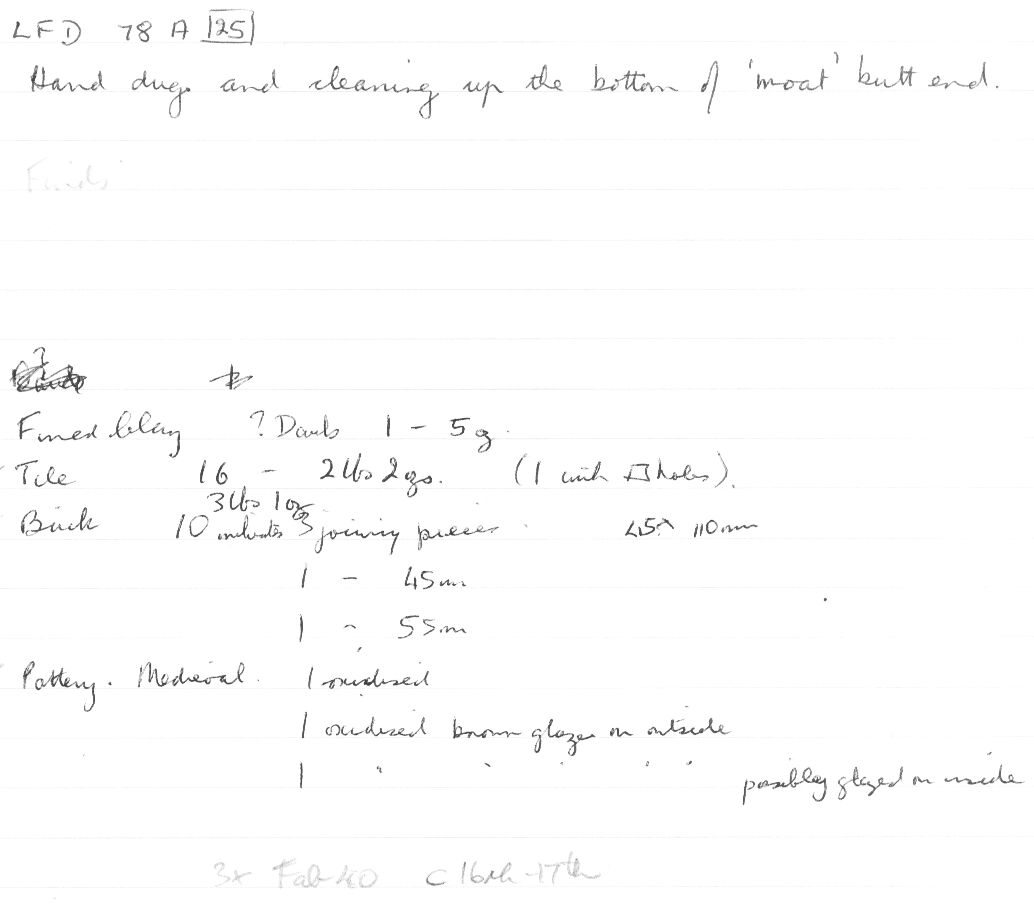 LFD 78 A 125
Hand dug and cleaning up the bottom of 'moat' butt end.
Finds
?
Fired Clay ? Daub 1 - 5g.
Tile 16 - 2lbs 2ozs. (1 with □ holes).
3lbs 1oz
Brick 10 includes 3 joining pieces 45 x 110mm
1 - 45mm
1 - 55mm
Pottery. Medieval. 1 oxidised
1 oxidised brown glaze on outside
1 " " " " " possibly glazed on inside
3x Fab 40 C16th-17th